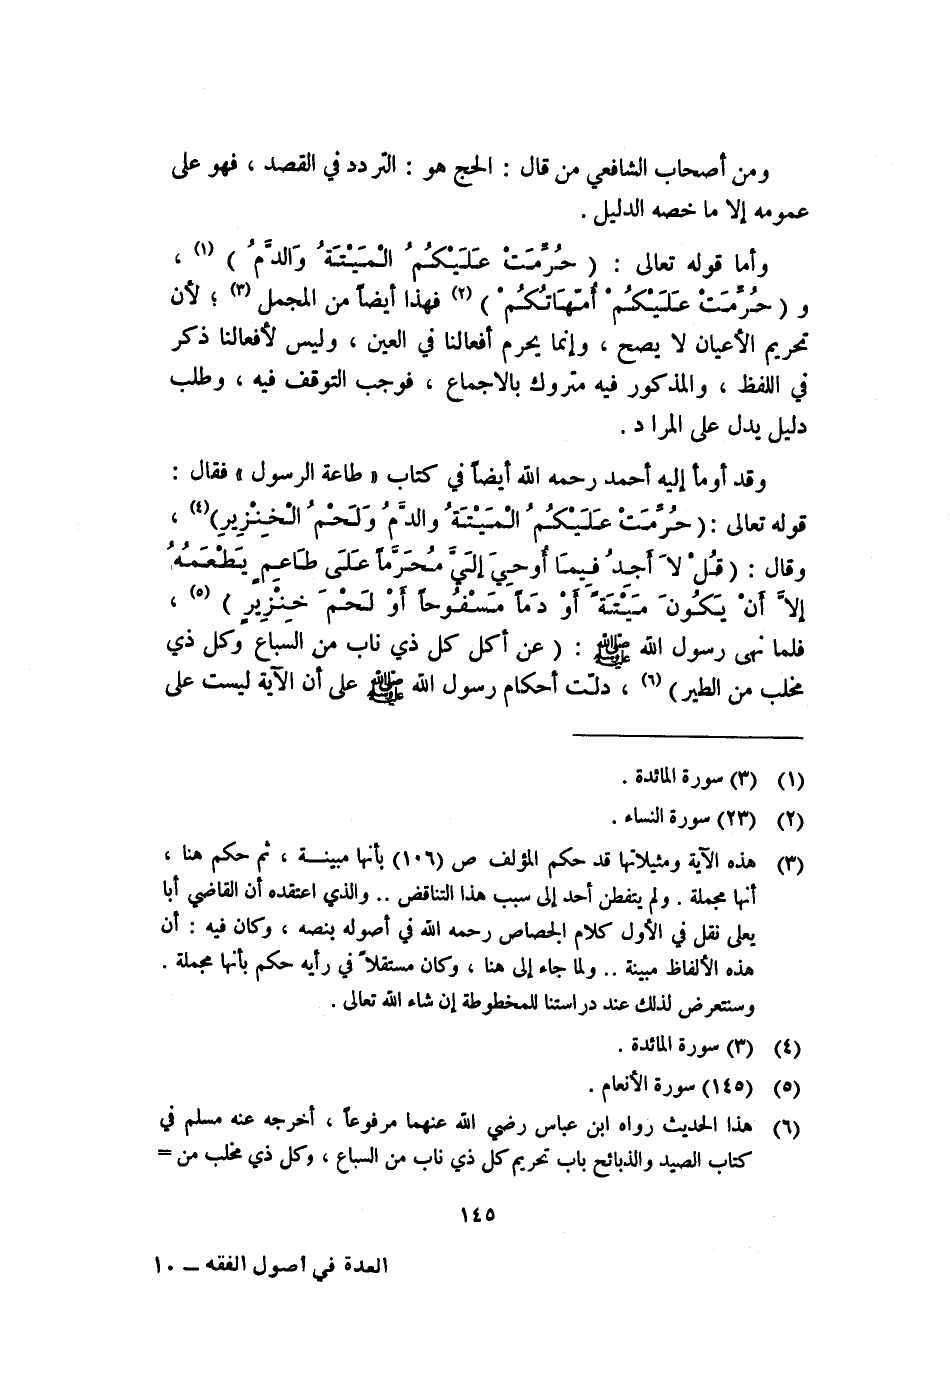 ومن أصحاب الشافعي من قال : الحج هو : التردد في القصد ، فهو على
عمومه إلا ما خصه الدليل .
وأما قوله تعالى : ( حُرِّمَتْ عَلَيْكُمُ الْمَيْتَةُ وَالدَّمُ ) (١) ،
و ( حُرِّمَتْ عَلَيْكُمْ أُمَّهَاتُكُمْ ) (٢) فهذا أيضاً من المجمل (٣) ؛ لأن
تحريم الأعيان لا يصح ، وإنما يحرم أفعالنا في العين ، وليس لأفعالنا ذكر
في اللفظ ، والمذكور فيه متروك بالاجماع ، فوجب التوقف فيه ، وطلب
دليل يدل على المراد .
وقد أومأ إليه أحمد رحمه الله أيضاً في كتاب « طاعة الرسول » فقال :
قوله تعالى : ( حُرِّمَتْ عَلَيْكُمُ الْمَيْتَةُ والدَّمُ وَلَحْمُ الْخِنْزِيرِ) (٤) ،
وقال : ( قُلْ لاَ أَجِدُ فِيمَا أُوحِيَ إِلَيَّ مُحَرَّماً عَلَى طَاعِمٍ يَطْعَمُهُ
إِلاَّ أَنْ يَكُونَ مَيْتَةً أَوْ دَماً مَسْفُوحاً أَوْ لَحْمَ خِنْزِيرٍ ) (٥) ،
فلما نهى رسول الله ﷺ : ( عن أكل كل ذي ناب من السباع وكل ذي
مخلب من الطير ) (٦) ، دلت أحكام رسول الله ﷺ على أن الآية ليست على
(١) (٣) سورة المائدة .
(٢) (٢٣) سورة النساء .
(٣) هذه الآية ومثيلاتها قد حكم المؤلف ص (١٠٦) بأنها مبينة ، ثم حكم هنا ،
أنها مجملة . ولم يتفطن أحد إلى سبب هذا التناقض .. والذي اعتقده أن القاضي أبا
يعلى نقل في الأول كلام الجصاص رحمه الله في أصوله بنصه ، وكان فيه : أن
هذه الألفاظ مبينة .. ولما جاء إلى هنا ، وكان مستقلاً في رأيه حكم بأنها مجملة .
وسنتعرض لذلك عند دراستنا للمخطوطة إن شاء الله تعالى .
(٤) (٣) سورة المائدة .
(٥) (١٤٥) سورة الأنعام .
(٦) هذا الحديث رواه ابن عباس رضي الله عنهما مرفوعاً ، أخرجه عنه مسلم في
كتاب الصيد والذبائح باب تحريم كل ذي ناب من السباع ، وكل ذي مخلب من =
١٤٥
العدة في أصول الفقه – ١٠